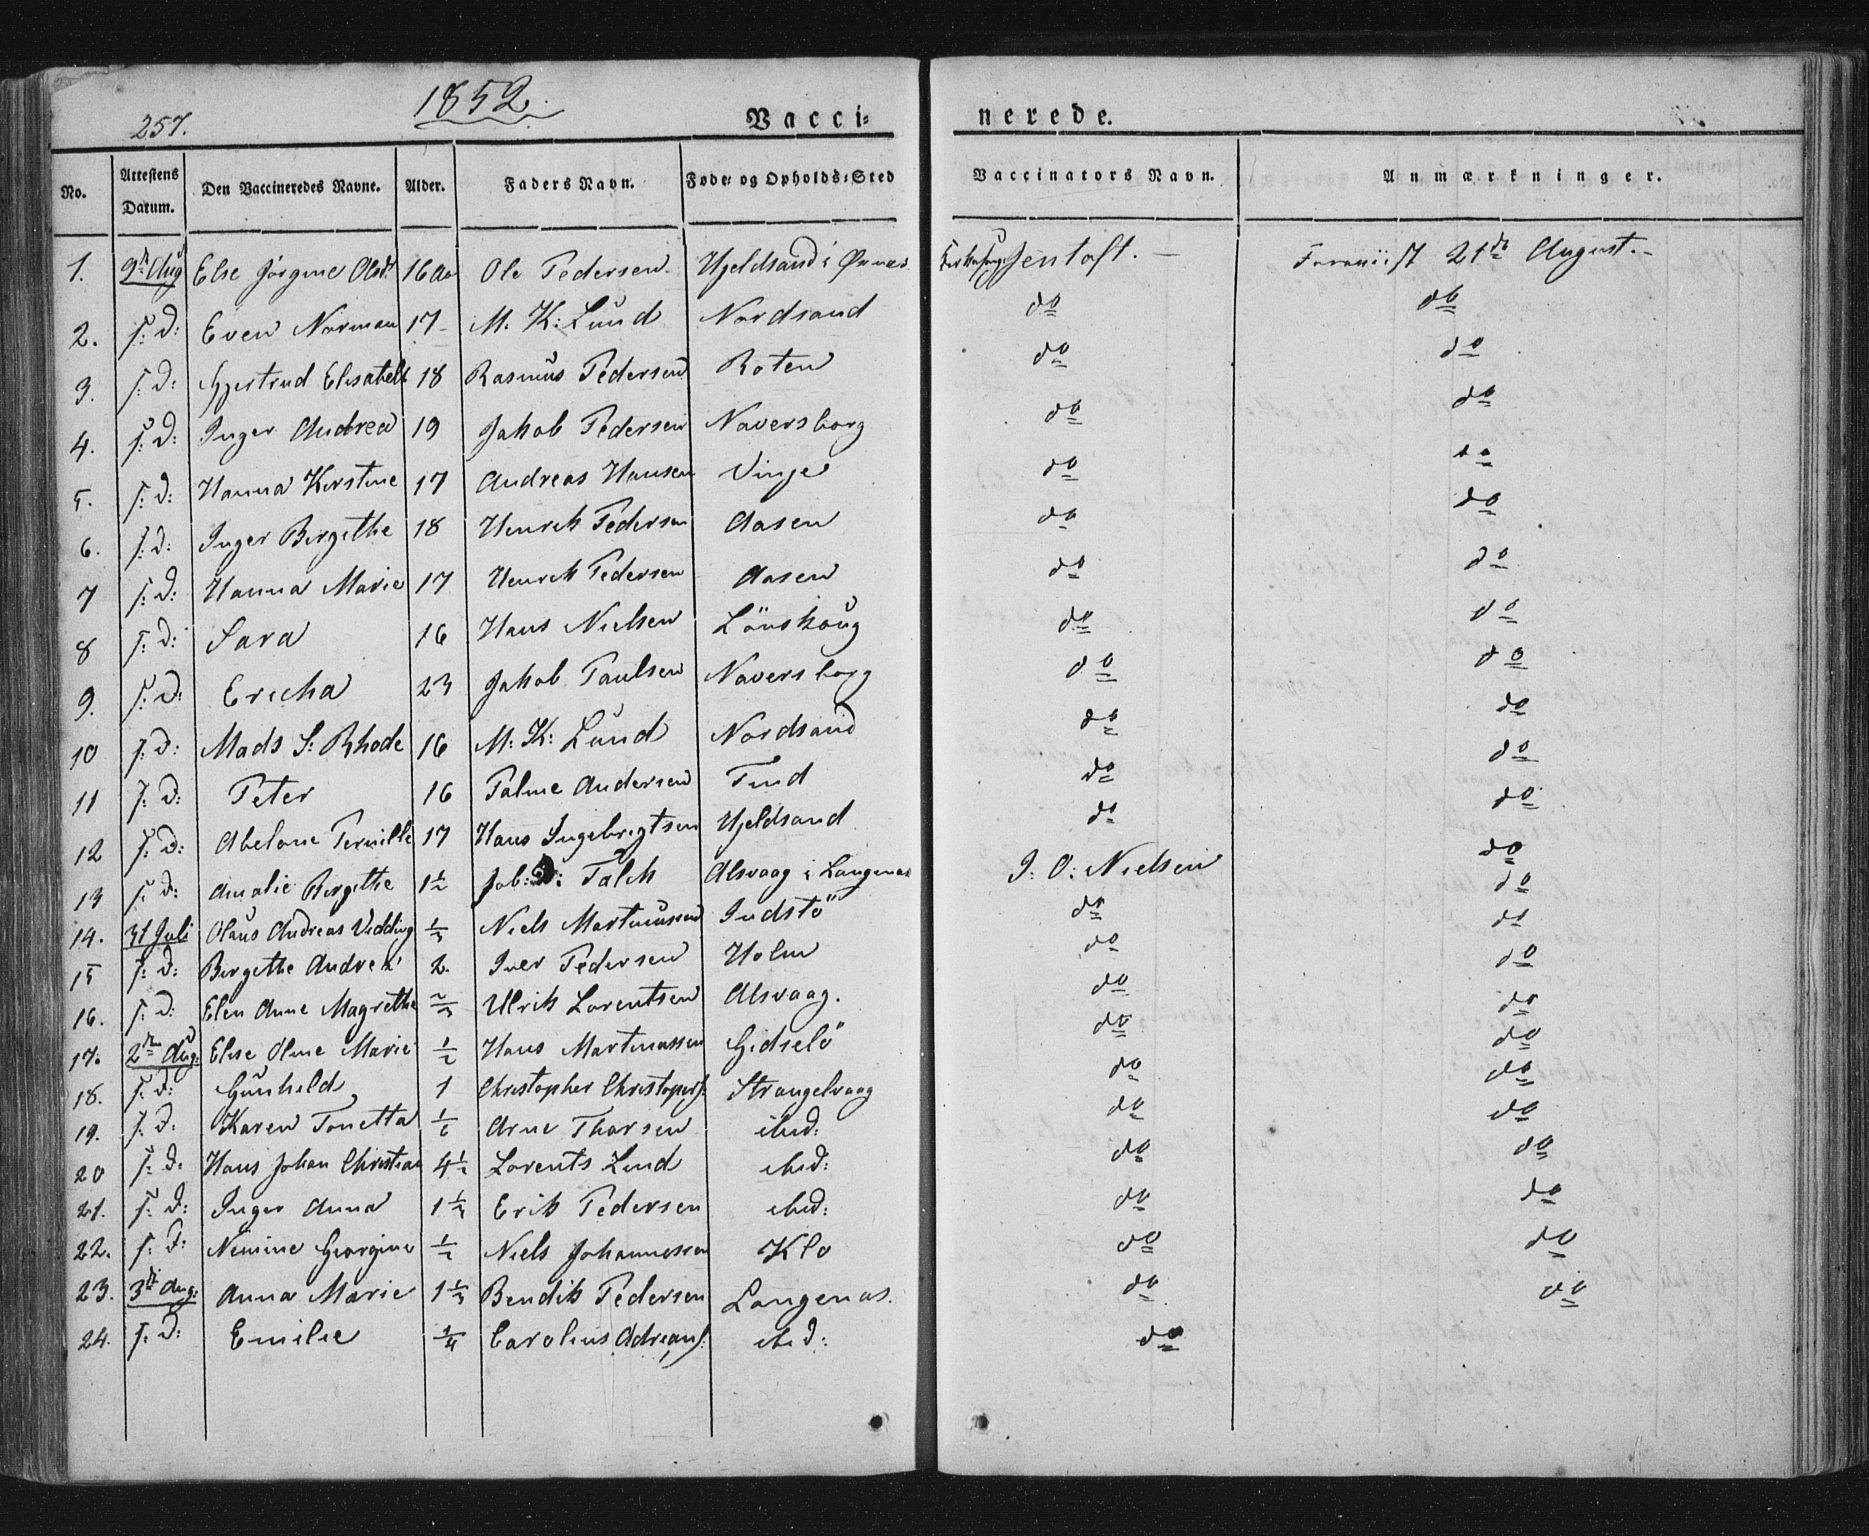 257.
1852.
Vacci- nerede.
No. Attestens Datum. Den Vaccineredes Navne. Alder. Faders Navn. Føde- og Opholds-Sted Vaccinators Navn. Anmærkninger.
1. 9de Aug Else Jørgine Olsdt 16 Aar Ole Pedersen Hjeldsand i Øxnes Jentoft. — 21de August. —
2. s: d: Even Norman 17 M. K: Lund Nordsand do do
3. s: d: Gjertrud Elisabeth 18 Rasmus Pedersen Roten do do
4. s: d: Inger Andrea 19 Jakob Pedersen Naversborg do do
5. s: d: Hanna Kirstine 17 Andreas Hansen Vinje do do
6. s: d: Inger Birgithe 18 Henrik Pedersen Aasen do do
7 s: d: Hanna Marie 17 Henrik Pedersen Aasen do do
8 s: d: Sara 16 Hans Nielsen Lönskoug do do
9. s: d: Ericka 23 Jakob Paulsen Naversborg do do
10 s: d: Mads S: Rhode 16 M: K: Lund Nordsand do do
11 s: d: Peter 16 Palme Andersen Tind do do
12 s: d: Abelone Pernille 17 Hans Ingebrigtsen Hjeldsand do do
13 s: d: Amalie Birgithe 1½ Jab: D: Falck Alsvaag i Langenæs J: O: Nielsen do
14. 31 Juli Olaus Andreas Vedding ⅓ Niels Martinussen Indstö do do
15 s: d: Birgithe Andrea 2. Iver Pedersen Holm do do
16. s: d: Elen Anne Magrethe ⅔ Ulrik Lorentsen Alsvaag. do do
17. 2den Aug: Elise Oline Marie ½ Hans Martinussen Gidselö do do
18. s: d: Gunhild 1 Christopher Christophers: Strangelvaag do do
19. s: d: Karen Tonetta ⅙ Arne Thorsen ibid: do do
20 s: d: Hans Johan Christian 4½ Lorents Lind ibid: do do
21. s: d: Inger Anna 1⅓ Erik Pedersen ibid: do do
22. s: d: Nimine Georgine ½ Niels Johannessen Klo do do
23. 3de Aug: Anna Marie 1⅓ Bendik Pedersen Langenæs. do do
24. s: d: Emilie ¼ Carolius Adrians: ibid: do